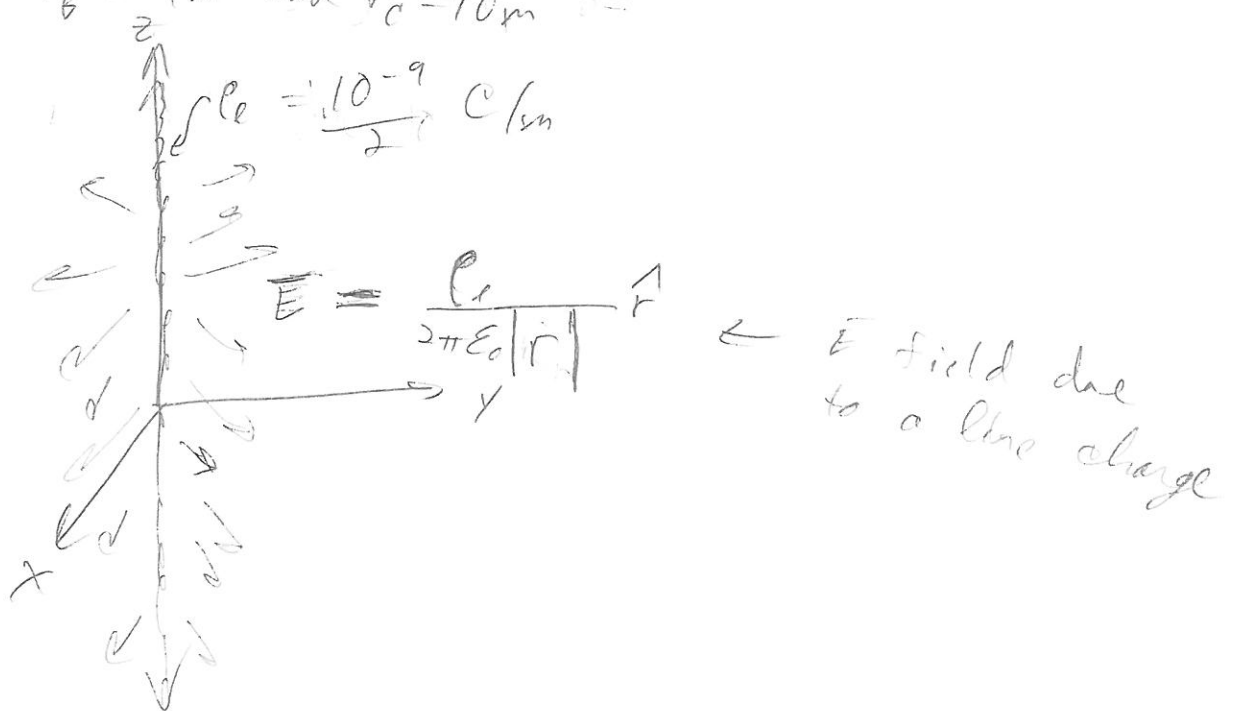 r_c = 10 m
z
ρ_ℓ = 10^-9 / 2 C/m
E̅ = ρ_ℓ / 2πε₀|r| r̂
← E̅ field due
to a line charge
y
x